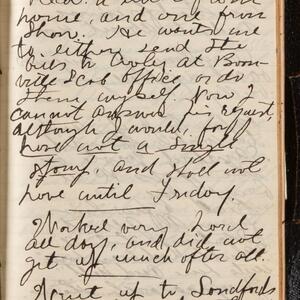 home, and one from
Show. He wants me
to either send the
cuts to Cooley at Boon-
ville Job office or do
them myself. Now I
cannot answer his request,
although I would, for I
have not a single
stamp, and shall not
have until Friday.
Worked very hard
all day, and did not
get up much after all.
Went up to Sandfords